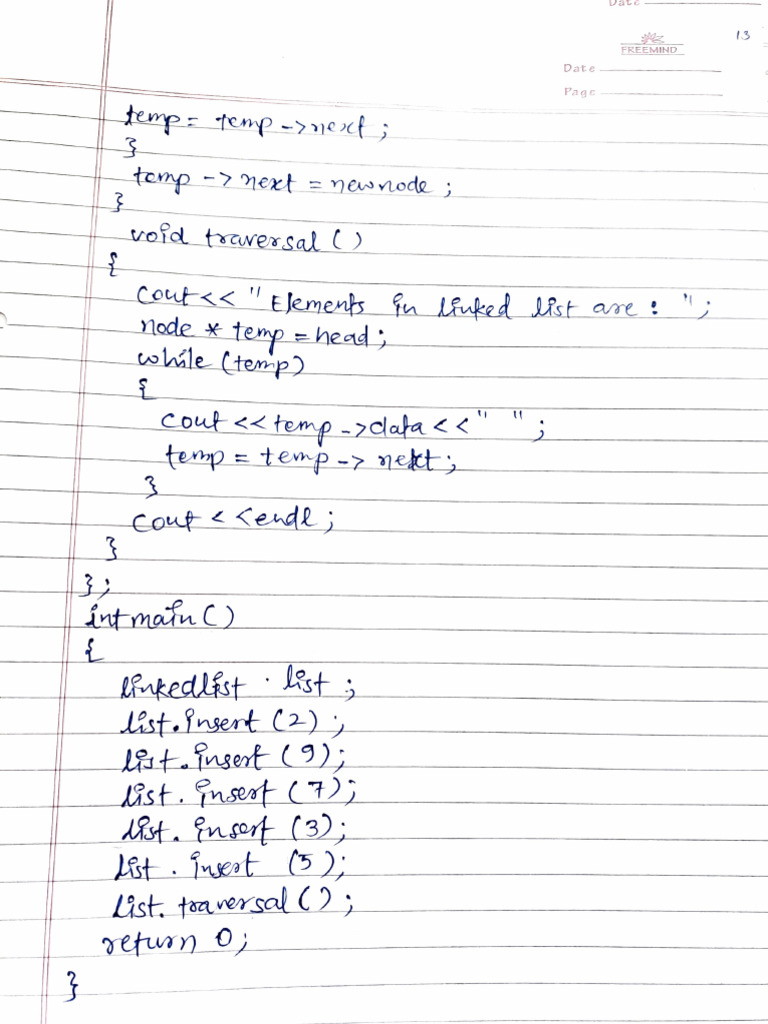 Date
13
FREEMIND
Date
Page
temp = temp -> next ;
}
temp -> next = newnode ;
}
void traversal ( )
{
cout << " Elements in linked list are : " ;
node * temp = head ;
while (temp)
{
cout << temp -> data << " " ;
temp = temp -> next ;
}
cout << endl ;
}
} ;
int main ( )
{
linkedlist . list ;
list . insert (2) ;
list . insert (9) ;
list . insert (7) ;
list . insert (3) ;
list . insert (5) ;
list . traversal ( ) ;
return 0 ;
}